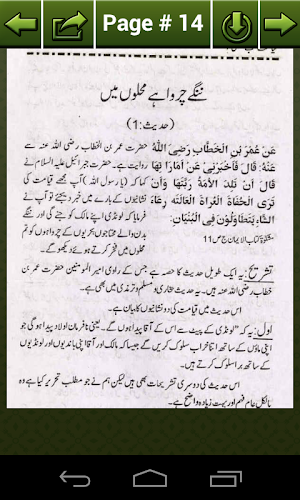 Page # 14
ننگے چرواہے محلوں میں
(حدیث:1)
عَنْ عُمَرَ بْنِ الْخَطَّابِ رَضِیَ اللّٰهُ حضرت عمر بن الخطاب رضی اللہ عنہ سے
عَنْهُ: قَالَ فَاَخْبِرْنِیْ عَنْ اَمَارَاتِهَا روایت ہے۔ حضرت جبرائیل علیہ السلام نے
قَالَ اَنْ تَلِدَ الْاَمَةُ رَبَّتَهَا وَاَنْ کہا کہ (یا رسول اللہ) آپ مجھے قیامت کی
تَرَی الْحُفَاةَ الْعُرَاةَ الْعَالَةَ رِعَاءَ نشانیوں کے بارے میں خبر دیجئے تو آپ نے
الشَّاءِ یَتَطَاوَلُوْنَ فِی الْبُنْیَانِ. فرمایا کہ لونڈی اپنے مالک کو جنے گی اور ننگے
مشکوٰۃ کتاب الایمان ج ص11 بدن والے محتاجوں بکریوں کے چرواہوں کو تم
محلوں میں فخر کرتے ہوئے دیکھو گے۔
تشریح: یہ ایک طویل حدیث کا حصہ ہے جس کے راوی امیر المومنین حضرت عمر بن
خطاب رضی اللہ عنہ ہیں۔ یہ حدیث بخاری و مسلم و ترمذی میں بھی ہے۔
اس حدیث میں قیامت کی دو نشانیوں کا بیان ہے۔
اول: یہ کہ "لونڈی کے پیٹ سے اس کے آقا پیدا ہوں گے۔ یعنی نافرمان اولاد پیدا ہوگی جو
اپنی ماؤں کے ساتھ اتنا خراب سلوک کریں گے جیسا کہ مالک اور آقا اپنی باندیوں اور لونڈیوں
کے ساتھ برا سلوک کرتے ہیں۔
اس حدیث کی دوسری تشریحات بھی ہیں لیکن ہم نے جو مطلب تحریر کیا ہے وہ
بالکل عام فہم اور بہت زیادہ واضح ہے۔